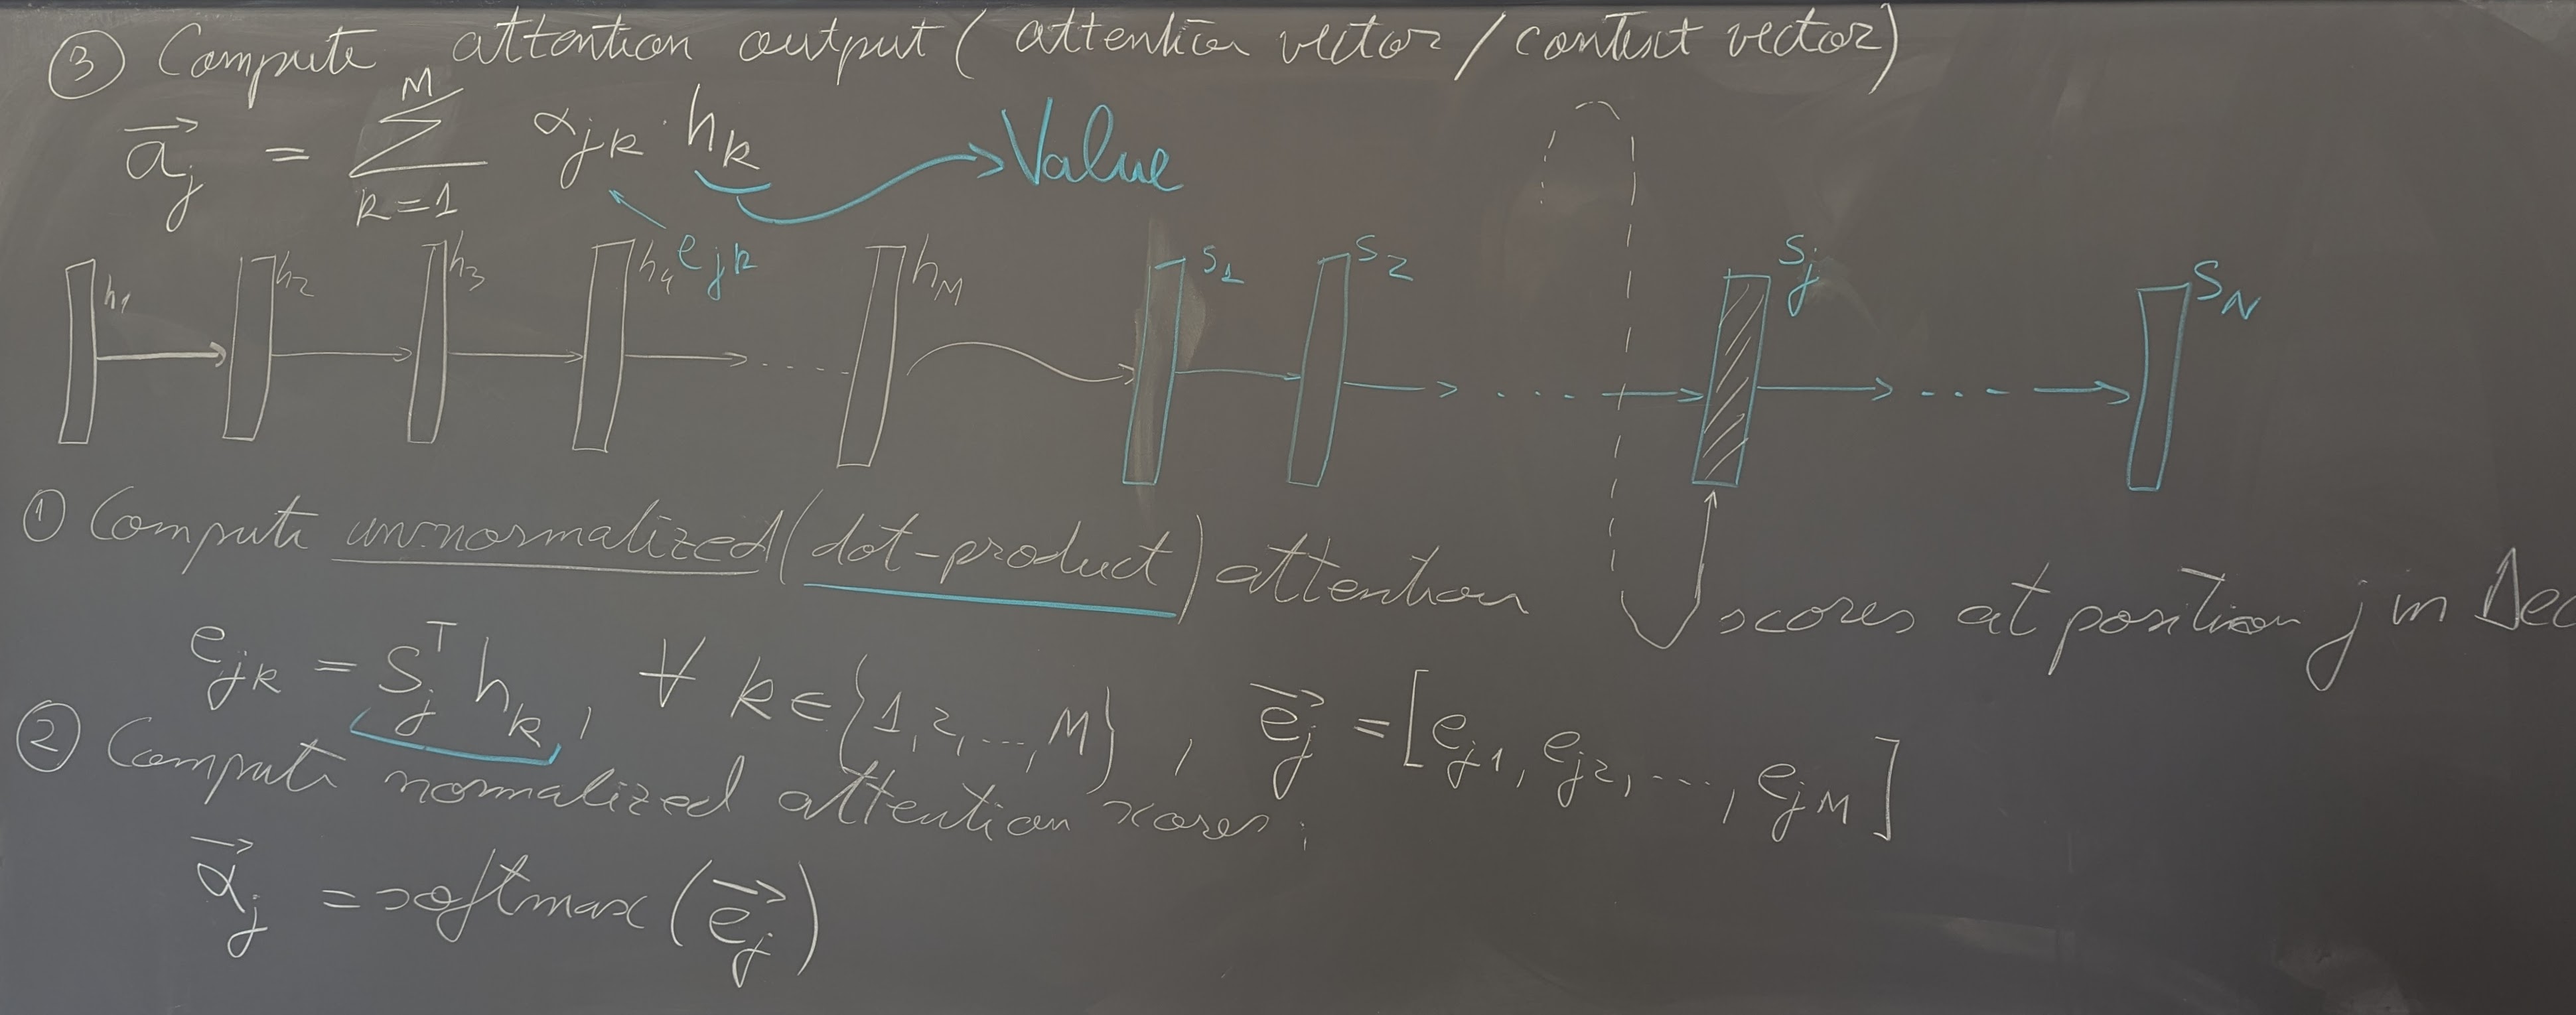 ③ Compute attention output (attention vector / context vector)
a⃗_j = Σ_{k=1}^{M} α_{jk} · h_k → Value
e_{jk}
h_1 h_2 h_3 h_4 h_M s_1 s_2 s_j s_N
① Compute un-normalized (dot-product) attention scores at position j in Dec
e_{jk} = s_j^T h_k, ∀ k ∈ {1, 2, ..., M}, e⃗_j = [e_{j1}, e_{j2}, ..., e_{jM}]
② Compute normalized attention scores:
α⃗_j = softmax(e⃗_j)